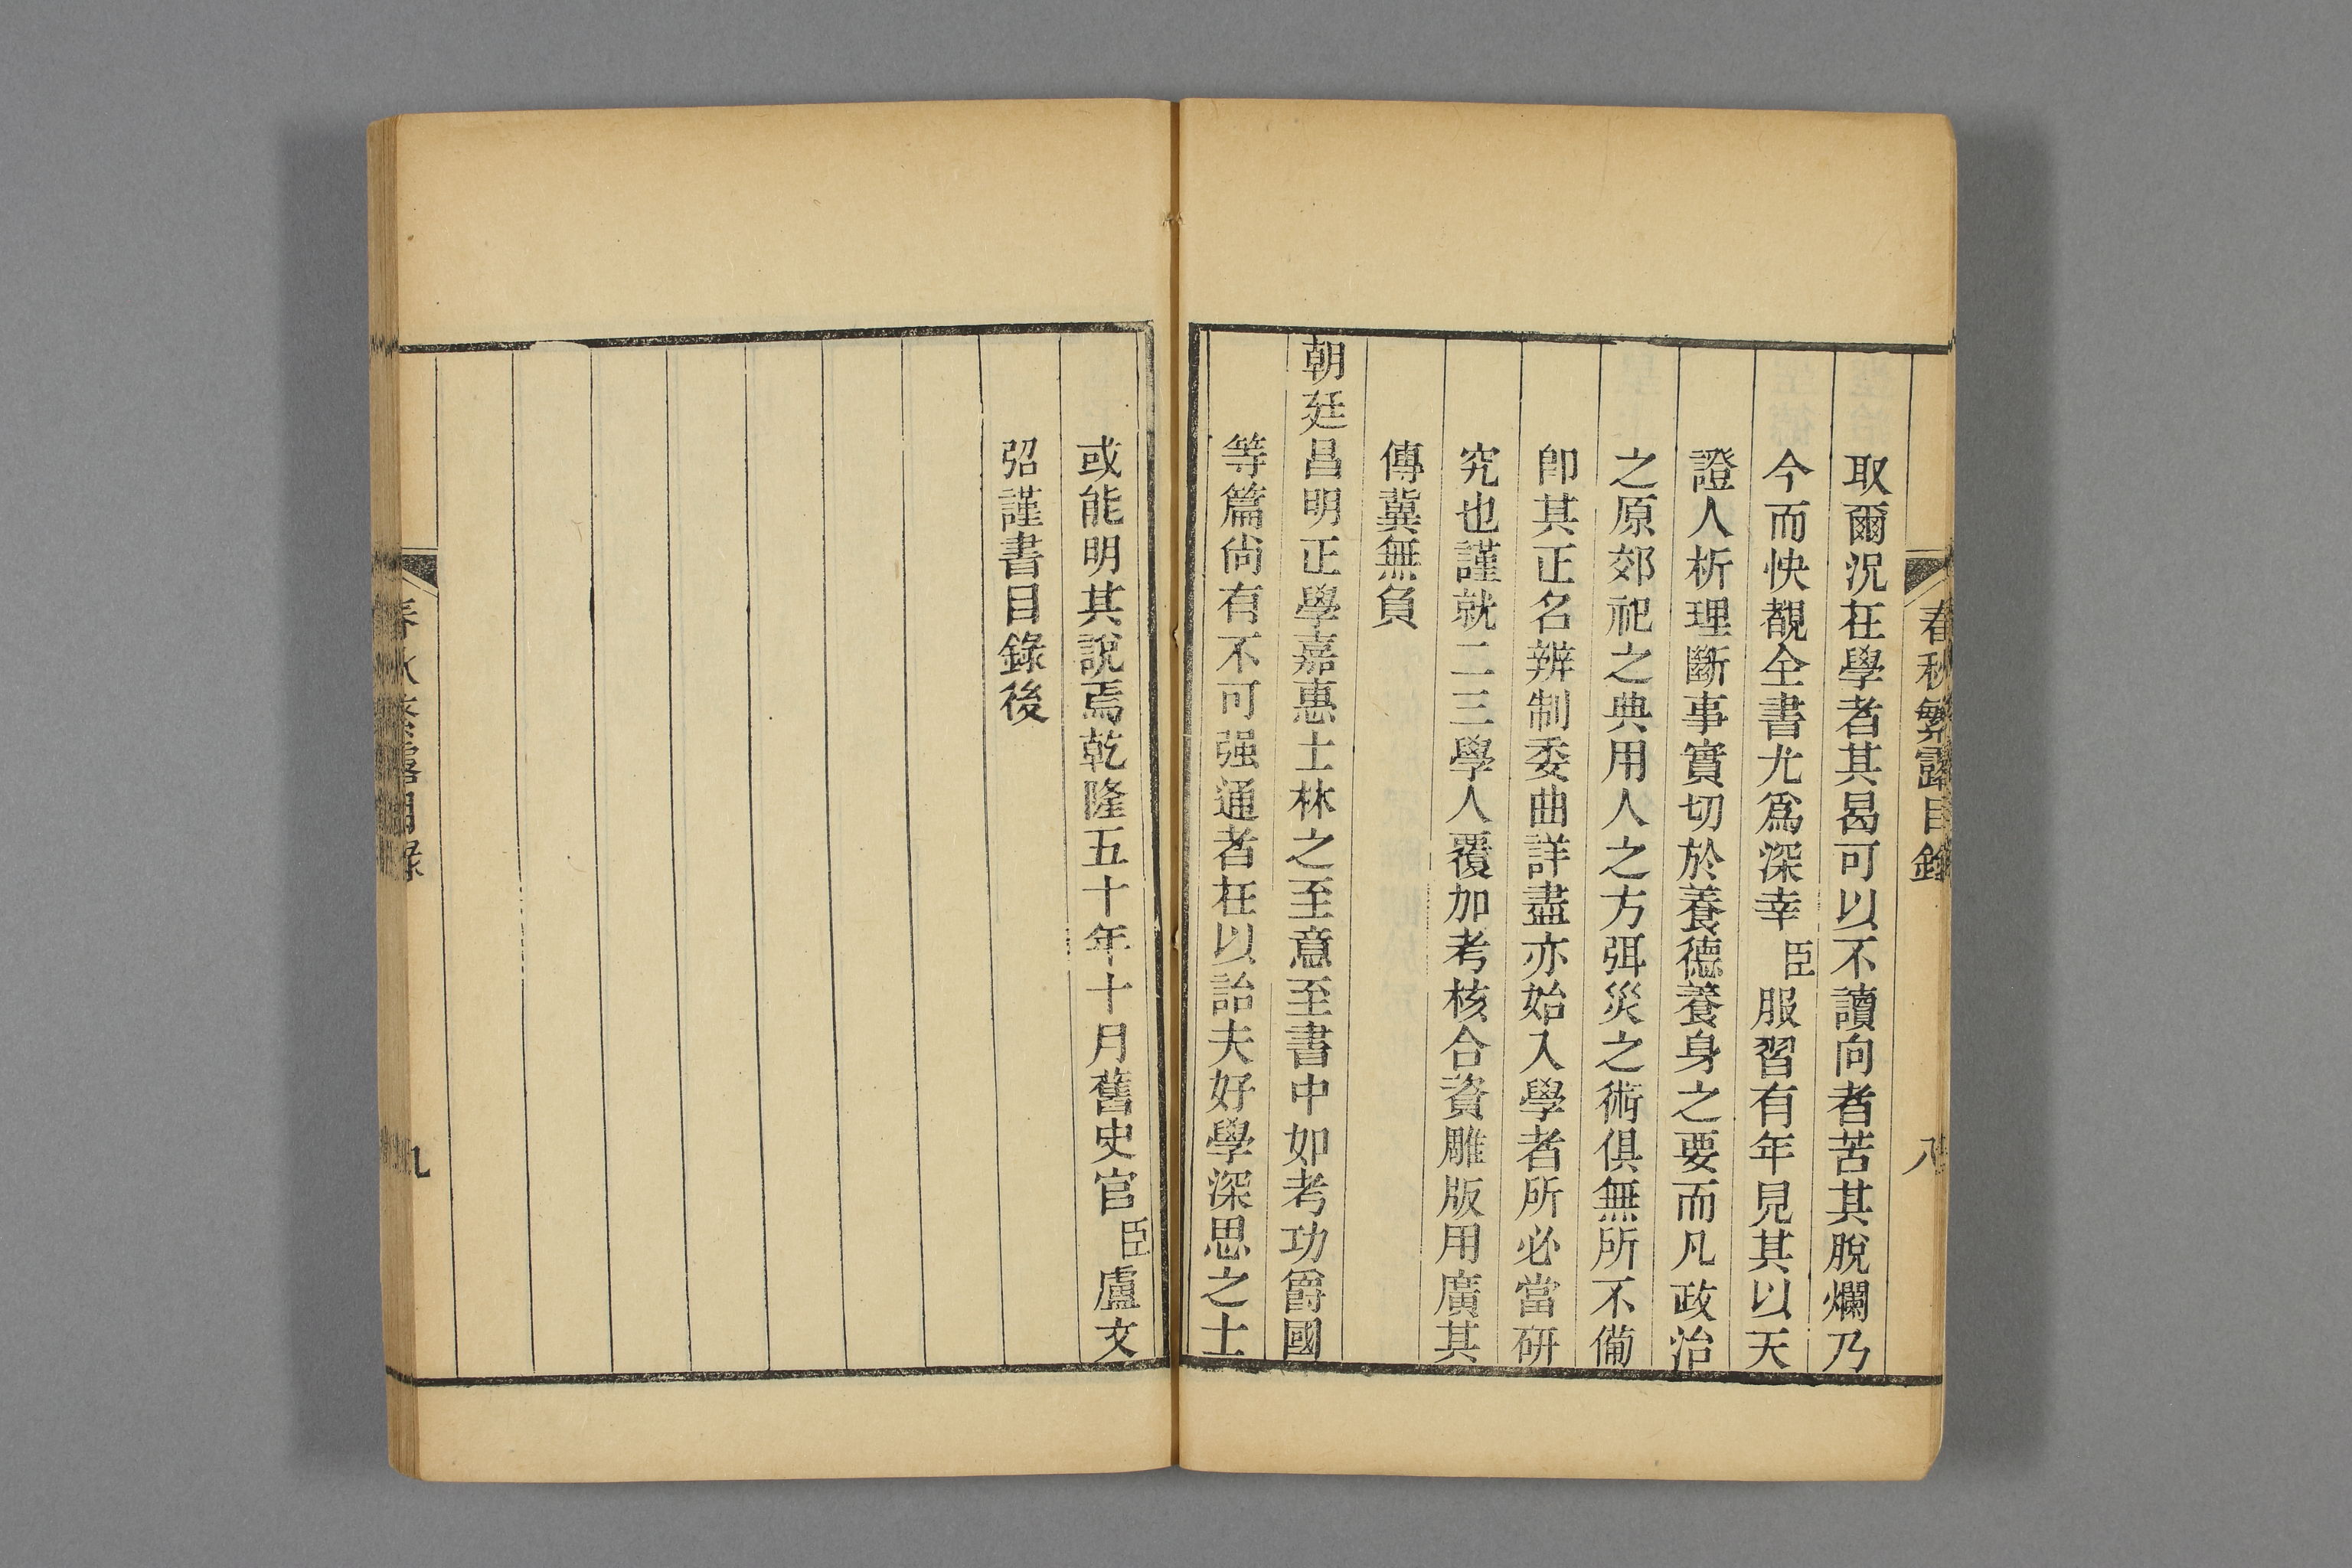 春秋繁露目錄
八
取爾況在學者其曷可以不讀向者苦其脫爛乃
今而快覩全書尤爲深幸臣服習有年見其以天
證人析理斷事實切於養德養身之要而凡政治
之原郊祀之典用人之方弭災之術俱無所不備
卽其正名辨制委曲詳盡亦始入學者所必當研
究也謹就二三學人覆加考核合資雕版用廣其
傳冀無負
朝廷昌明正學嘉惠士林之至意至書中如考功爵國
等篇尙有不可强通者在以詒夫好學深思之士
或能明其說焉乾隆五十年十月舊史官臣盧文
弨謹書目錄後
春秋繁露目錄
九